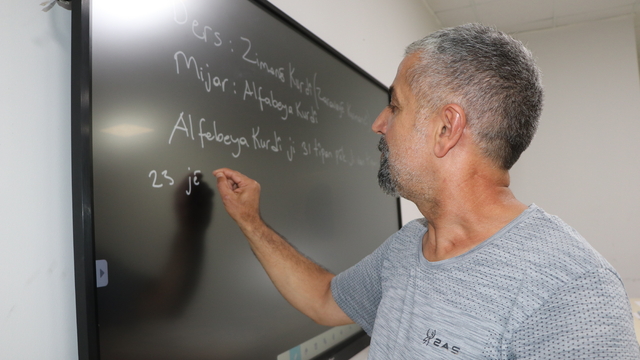 Ders: Zimanê Kurdî (
Mijar: Alfabeya Kurdî
Alfebeya Kurdî ji 31 tîpan
23 jê